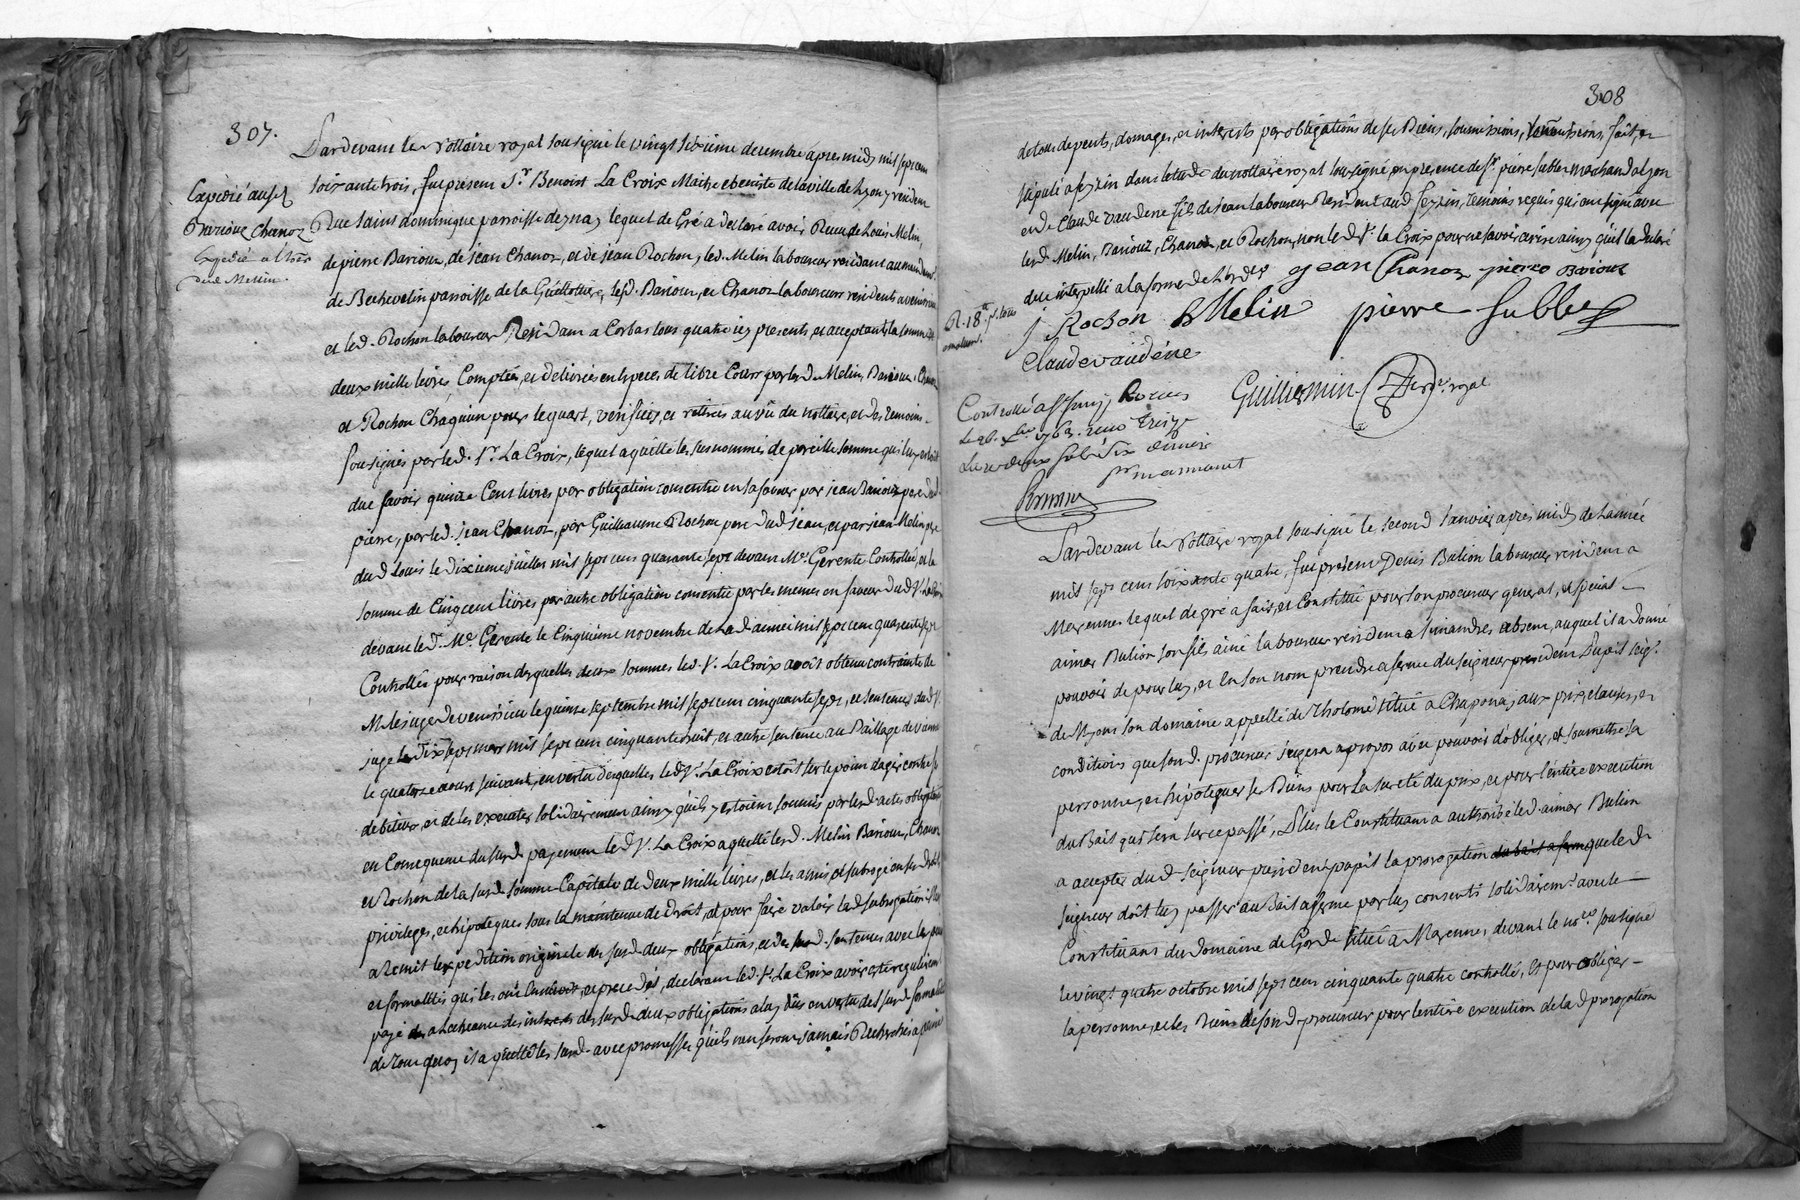 307.
Pardevant le Nottaire royal sousigné le vingt sixieme decembre apres midy mil sept cent
soixante trois, fut present Sr. Benoist La Croix Maitre ebeniste de la ville de Lyon y resident
Rue saint dominique parroisse deynay lequel de Gré a declaré avoir Receu de Louis Melin,
de pierre Barioux, de jean Chanoz, et de jean Rochon, led. Melin laboureur residant au mandemt.
de Bechevelin parroisse de la Guillottiere, lesd. Barioux, et Chanoz laboureurs residents a venissieu
et led. Rochon laboureur Residant a Corbas tous quatre icy presents, et acceptants la somme de
deux mille livres Comptée, et delivrée en especes de libre Cours par lesd. Melin, Barioux, Chanoz
et Rochon Chaquun pour le quart, verifiées, et retirées au vû du nottaire, et des temoins
sousignés par led. Sr. La Croix, lequel a quitté les susnommés de pareille somme qui luy estoit
due savoir quinze Cent livres par obligation consentie en sa faveur par jean Barioux pere dud.
pierre, par led. jean Chanoz, par Guillaume Rochon pere dud. jean, et par jean Melin pere
dud. Louis le dixieme juillet mil sept cent quarante sept devant Me. Gerente Controllée, et la
somme de Cinq cent livres par autre obligation consentie par les memes en faveur dud. Sr. La Croix
devant led. Me. Gerente le Cinquieme novembre de lad. année mil sept cent quarente sept
Controllée pour raison desquelles deux sommes led. Sr. La Croix avoit obtenu contrainte de
M. le juge de venissieu le quinze septembre mil sept cent cinquante sept, et sentence dud. Sr.
juge le dix sept mars mil sept cent cinquante huit, et autre sentence au Baillage de vienne
le quatorze aoust suivant, en vertu desquelles led. Sr. La Croix estoit sur le point dagir contre ses
debiteurs, et de les executer solidairement ainsy qu'ils y estoient soumis par lesd. actes obligatoires
en Consequence du susd. payement led. Sr. La Croix a quitté lesd. Melin Barioux, Chanoz
et Rochon de la susd. somme Capitale de deux mille livres, et les a mis et subrogé en ses droits
privileges, et hipoteques sous la maintenue de droit, et pour faire valoir lad. subrogation il leur
a Remis lexpedition originele des susd. deux obligations, et des susd. sentences avec les
et formalités qui les ont et precedés, declarant led. Sr. La Croix avoir esté regulierement
payé a lecheance des interets des susd. deux obligations a luy dûs en vertu des susd. formalités
de tout quoy il a quitté les susd. avec promesse qu'ils n'en seront jamais Recherchés a peine
Expedié aux sr
Barioux Chanoz
Expedié a lhoir
dud. Mellin.
308
de tous depents, domages, et interests par obligations de ses Biens, soumissions, renonciations, fait, et
stipulé a feyzin dans letude du nottaire royal sousigné, en presence de Sr. pierre subler marchand a Lyon
et de Claude vaudene fils de jean laboureur Resident aud. feyzin, temoins requis qui ont signé avec
lesd. Melin, Barioux, Chanoz, et Rochon, non led. Sr. la Croix pour ne savoir ecrire ainsy qu'il la declaré
duu interpellé a la forme de
jean Chanoz pierre Barioux
J Rochon B Melin pierre Subler
Claude vaudene
Guilliermin Nre. royal
Controllé a
le 26. Xbre 1763. recu treize
livres deux sols six deniers
Pardevant le Nottaire royal sousigné le second Janvier apres midy de L'année
mil sept cent soixante quatre, fut present Denis Bulion laboureur resident a
Mayennes lequel de gré a fait, et Constitué pour son procureur general, et special
aimar Bulion son fils ainé laboureur resident a Simandres absent, auquel il a donné
pouvoir de pour luy, et en son nom prendre a ferme du seigneur president Dupuit seigr.
de Myons son domaine appellé de Tholomé situé a Chaponay, aux prix, clauses, et
conditions que sond. procureur jugera a propos avec pouvoir d'obliger, et soumettre sa
personne, et hipotequer ses Biens pour la sureté du prix, et pour l'entiere execution
du Bail qui sera sur ce passé, Plus le Constituant a authorisé led. aimar Bulion
a accepter dud. seigneur president dupuit la prorogation du bail a ferme que led.
seigneur doit luy passer au Bail a ferme par luy consenti solidairemt. avec le
Constituant du domaine de Gorde situé a Mayennes, devant le nore. sousigné
le vingt quatre octobre mil sept cent cinquante quatre controllé, et pour obliger
la personne, et les Biens de sond. procureur pour l'entiere execution de lad. prorogation